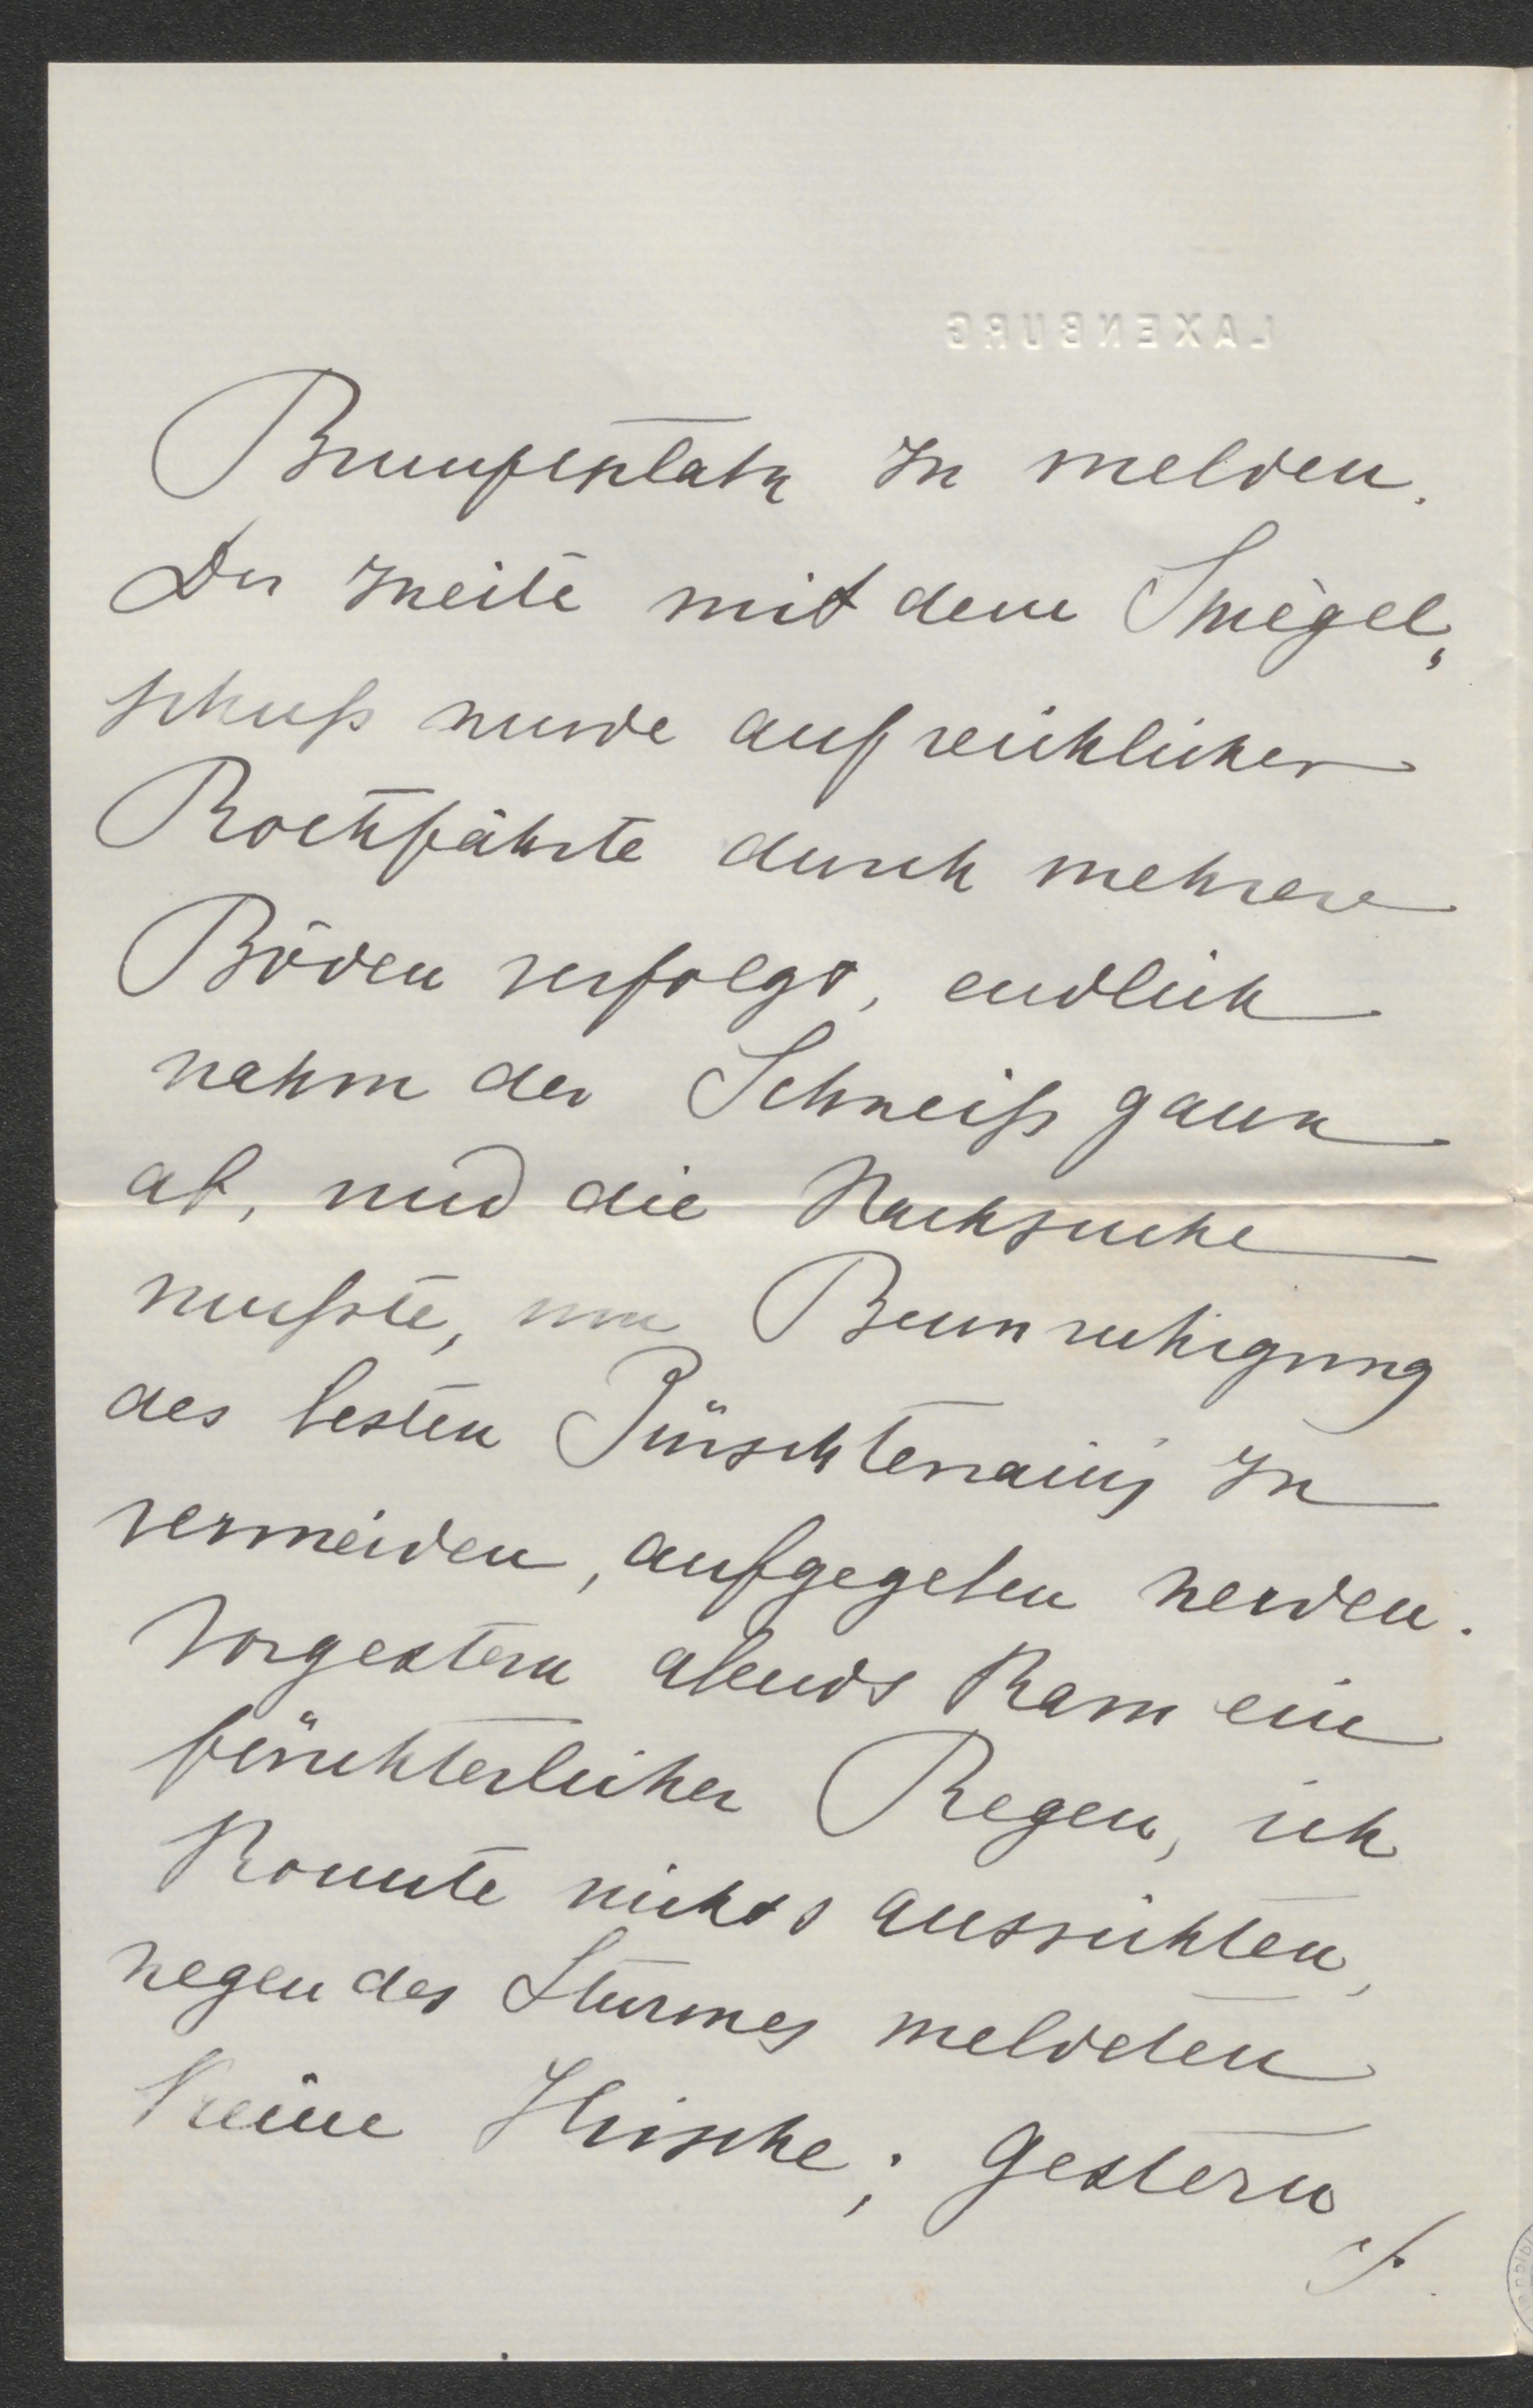 LAXENBURG
Brunftplatz zu melden.
Der zweite mit dem Spiegel„
schuß wurde auf reichlicher
Rothfährte durch mehrere
Böden verfolgt, endlich
nahm der Schweiß ganz
ab, und die Nachsuche
mußte, um Beunruhigung
des besten Pürschterrains zu
vermeiden, aufgegeben werden.
Vorgestern abends kam ein
fürchterlicher Regen, ich
konnte nichts ausrichten,
wegen des Sturmes meldeten
keine Hirsche; gestern
./.